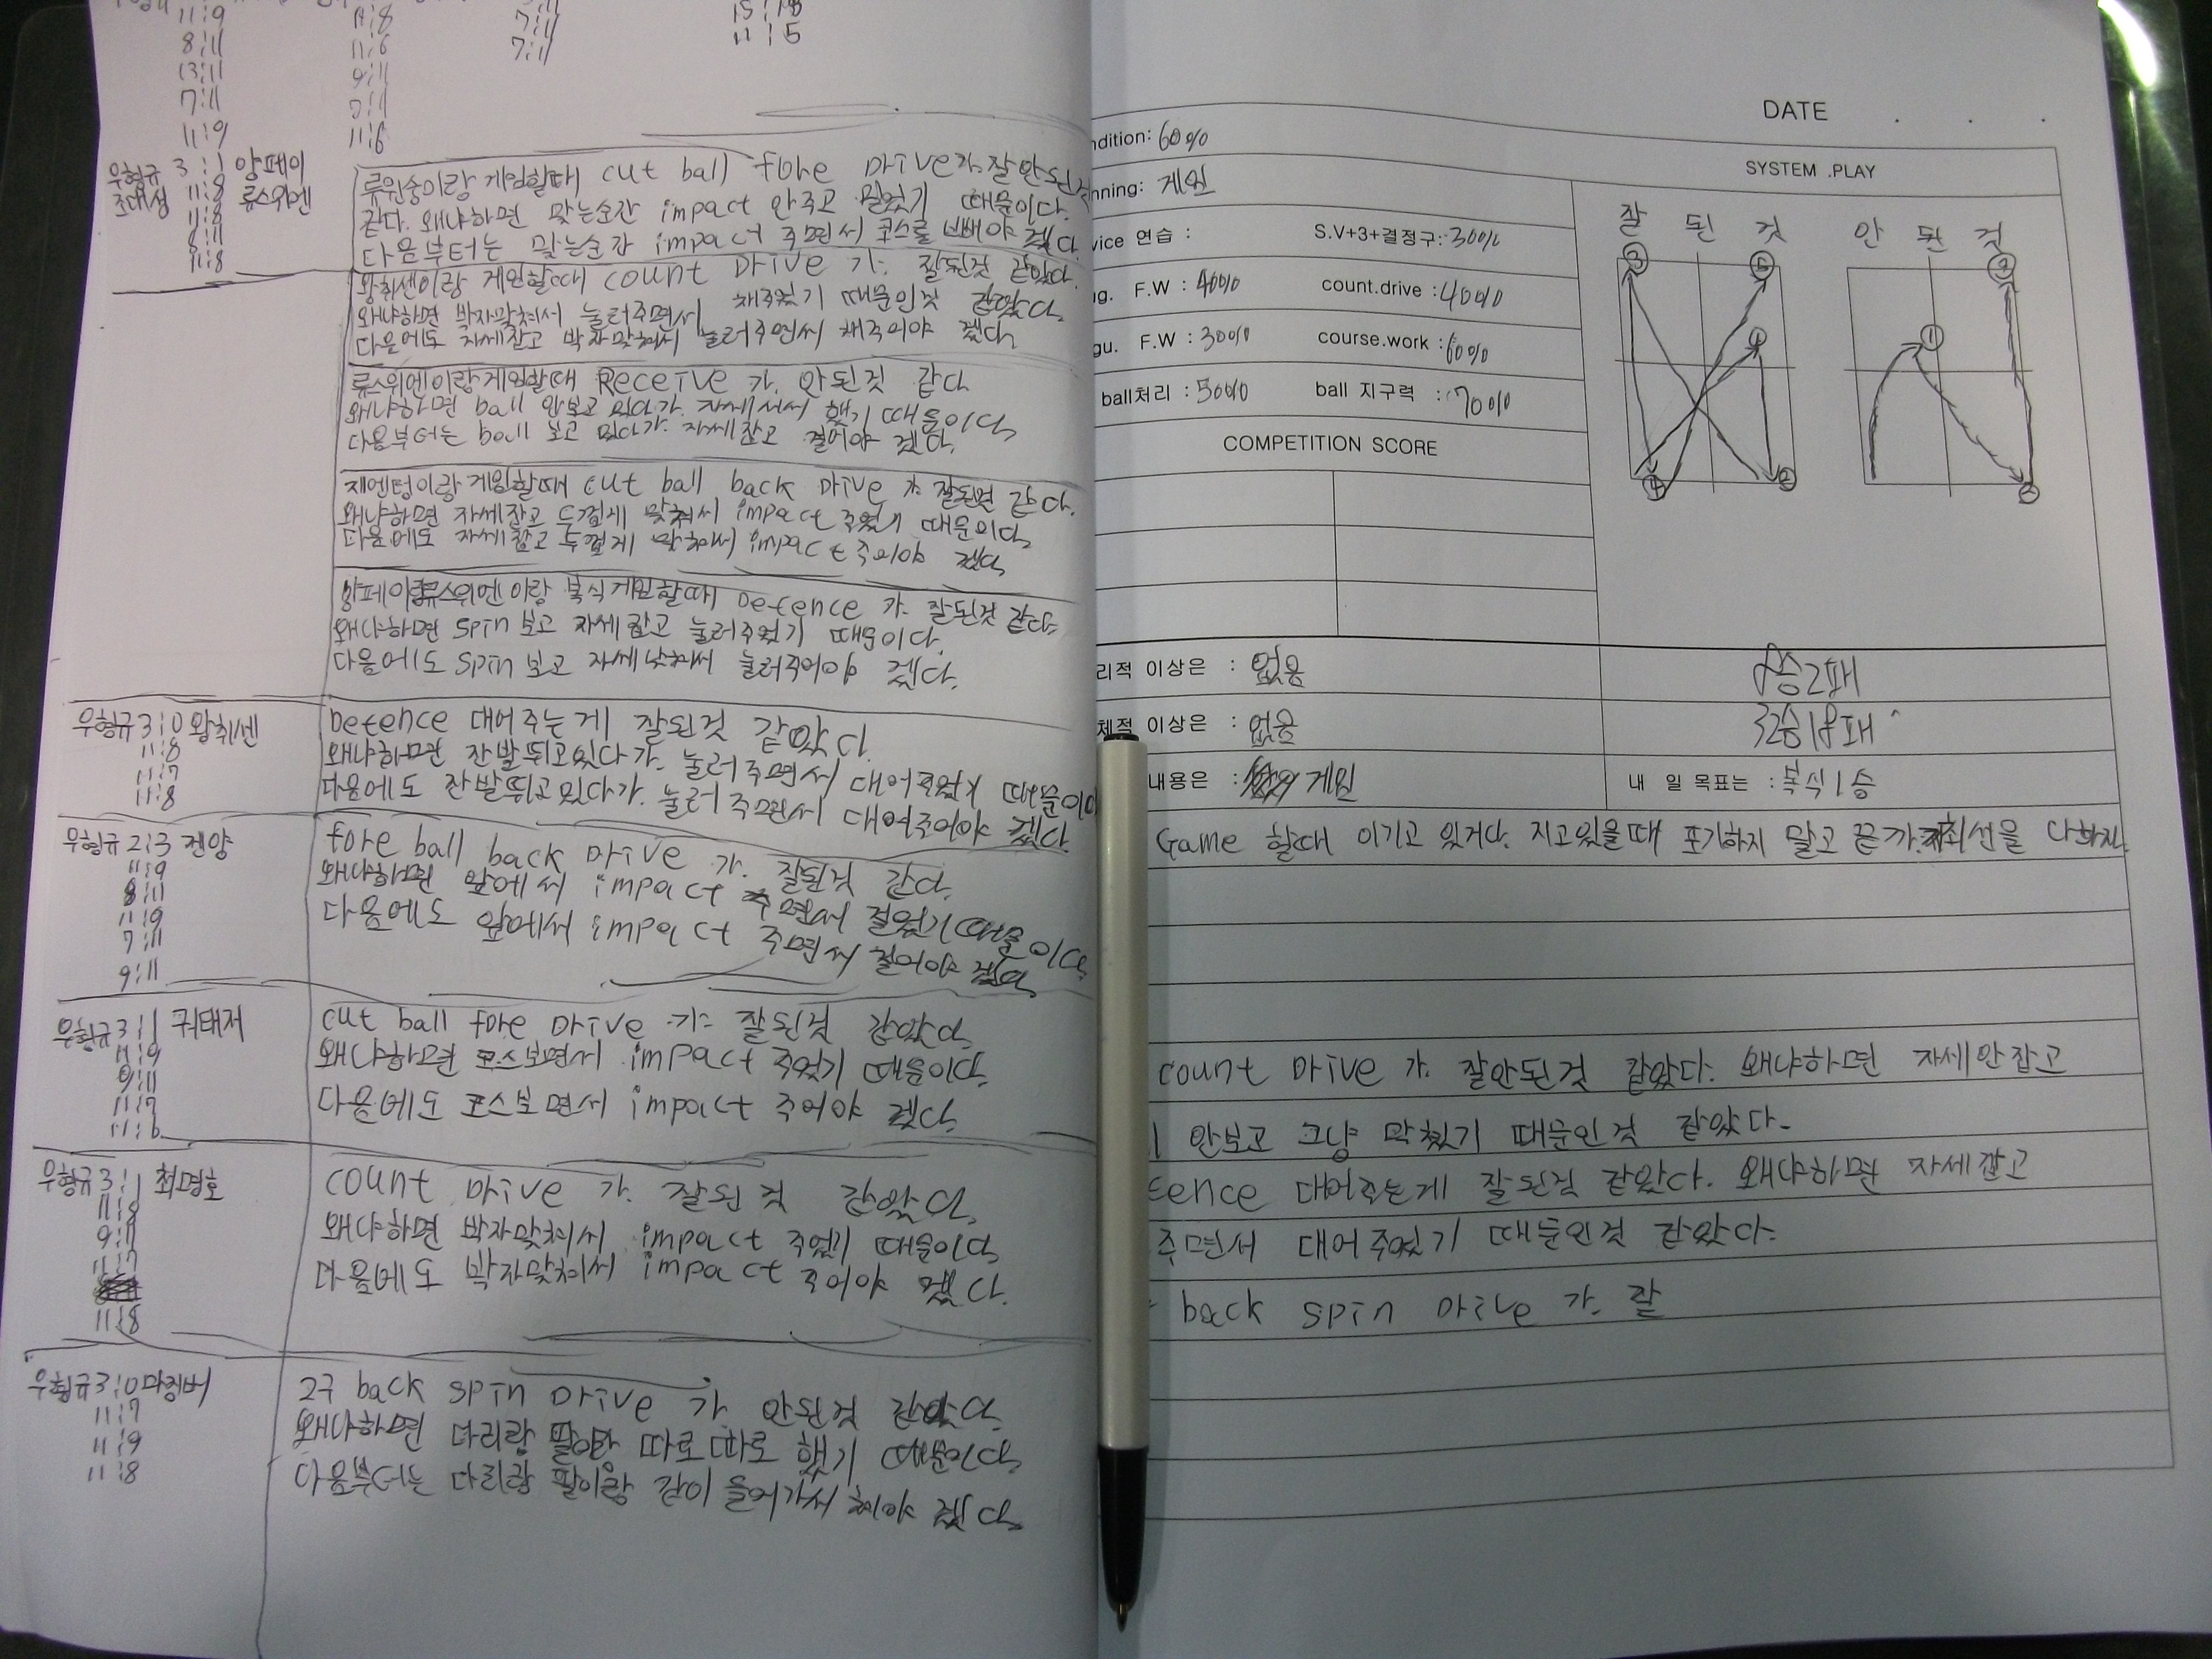 11:9
8:11
13:11
7:11
11:9
11:8
11:6
9:11
7:11
11:6
7:11
7:11
11:5
우형규 3:1 양페이
조대성 11:8 류스위엔
11:8
8:11
11:8
류원숭이랑 게임할때 cut ball fore Drive가 잘안된것
같다. 왜냐하면 맞는순간 impact 안주고 밀었기 때문이다.
다음부터는 맞는순간 impact 주면서 코스를 빼야 겠다.
왕취센이랑 게임할때 count Drive 가 잘된것 같았다.
왜냐하면 박자맞춰서 눌러주면서 채주었기 때문인것 같았다.
다음에도 자세잡고 박자맞춰서 눌러주면서 채주어야 겠다.
류스위엔이랑게임할때 Receive 가 안된것 같다
왜냐하면 ball 안보고 있다가 자세서서 했기 때문이다.
다음부터는 ball 보고 있다가 자세잡고 걸어야 겠다.
재엔텅이랑게임할때 cut ball back Drive 가 잘된것 같다.
왜냐하면 자세잡고 두껍게 맞춰서 impact 주었기 때문이다.
다음에도 자세잡고 두껍게 맞춰서 impact 주어야 겠다.
양페이랑류스위엔이랑 복식게임할때 Defence 가 잘된것 같다.
왜냐하면 spin 보고 자세잡고 눌러주었기 때문이다.
다음에도 spin 보고 자세낮춰서 눌러주어야 겠다.
우형규 3:0 왕취센
11:8
11:7
11:8
Defence 대어주는게 잘된것 같았다.
왜냐하면 잔발뛰고있다가 눌러주면서 대어주었기 때문이다
다음에도 잔발뛰고있다가 눌러주면서 대어주어야 겠다.
우형규 2:3 젠양
11:9
8:11
11:9
7:11
9:11
fore ball back Drive 가 잘된것 같다.
왜냐하면 앞에서 impact 주면서 걸었기때문이다.
다음에도 앞에서 impact 주면서 걸어야 겠다.
우형규 3:1 귀태저
11:9
9:11
11:7
11:6
cut ball fore Drive 가 잘된것 같았다.
왜냐하면 코스보면서 impact 주었기 때문이다.
다음에도 코스보면서 impact 주어야 겠다.
우형규 3:1 최명호
11:8
9:11
11:7
11:8
count Drive 가 잘된것 같았다.
왜냐하면 박자맞춰서 impact 주었기 때문이다.
다음에도 박자맞춰서 impact 주어야 겠다.
우형규 3:0 마정버
11:7
11:9
11:8
2구 back spin Drive 가 안된것 같았다.
왜냐하면 다리랑 팔이랑 따로따로 했기 때문이다.
다음부터는 다리랑 팔이랑 같이 들어가서 해야 겠다.
DATE . . .
ndition: 60%
SYSTEM .PLAY
nning: 게임
vice 연습 : S.V+3+결정구: 30%
ng. F.W : 40% count.drive : 40%
gu. F.W : 30% course.work : 60%
ball처리 : 50% ball 지구력 : 70%
잘 된 것 안 된 것
COMPETITION SCORE
리적 이상은 : 없음
8승2패
체적 이상은 : 없음
32승18패
내용은 : 게임
내 일 목표는 : 복식1승
Game 할때 이기고 있거나 지고있을때 포기하지 말고 끝까지 최선을 다하자.
count Drive 가 잘안된것 같았다. 왜냐하면 자세안잡고
안보고 그냥 막쳤기 때문인것 같았다.
fence 대어주는게 잘된것 같았다. 왜냐하면 자세잡고
주면서 대어주었기 때문인것 같았다.
back spin Drive 가 잘